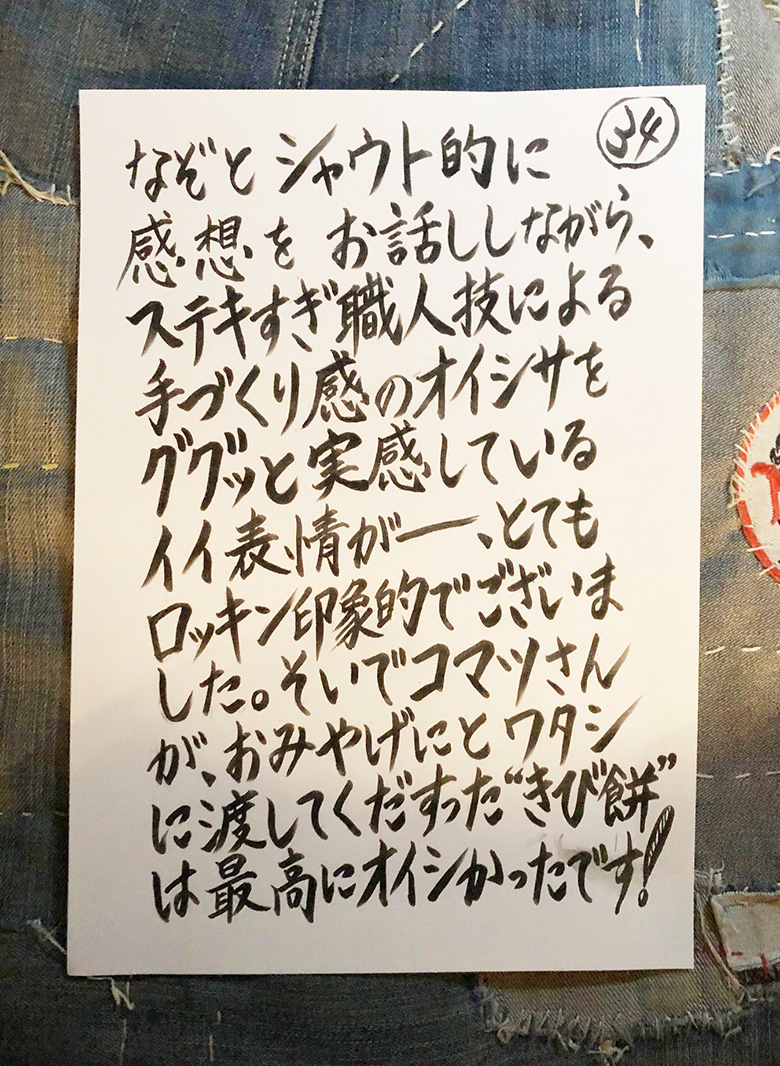 34
なぞと シャウト的に
感想を お話ししながら、
ステキすぎ職人技による
手づくり感のオイシサを
ググッと実感している
イイ表情がー、とても
ロッキン印象的でございま
した。そいでコマツさん
が、おみやげにと ワタシ
に渡してくだすった“きび餅”
は最高にオイシかったです!